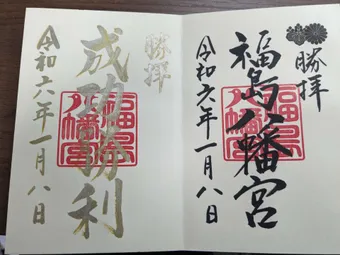 勝拝
福島八幡宮
福島八幡宮
令和六年一月八日
勝拝
成功勝利
福島八幡宮
令和六年一月八日